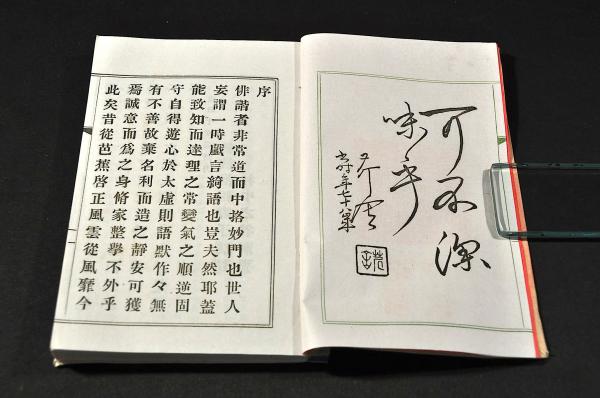 可不深
味乎
序
俳諧者非常道而中挌妙門也世人
妄謂一時戯言綺語也豈夫然耶蓋
能致知而達理之常變氣之順逆固
守自得遊心於太虛則語默作々無
有不善故棄名利而造之靜安可獲
焉誠意而爲之身脩家整擧不外乎
此矣昔從芭蕉啓正風雲從風靡今